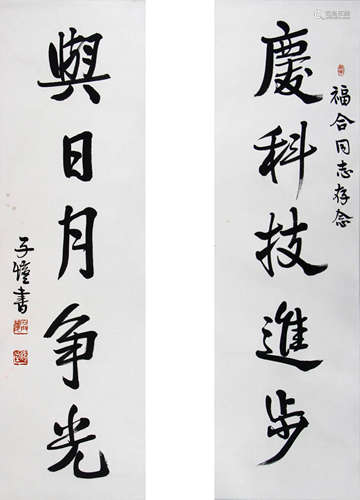 福合同志存念
慶科技進步
與日月争光
子愷書